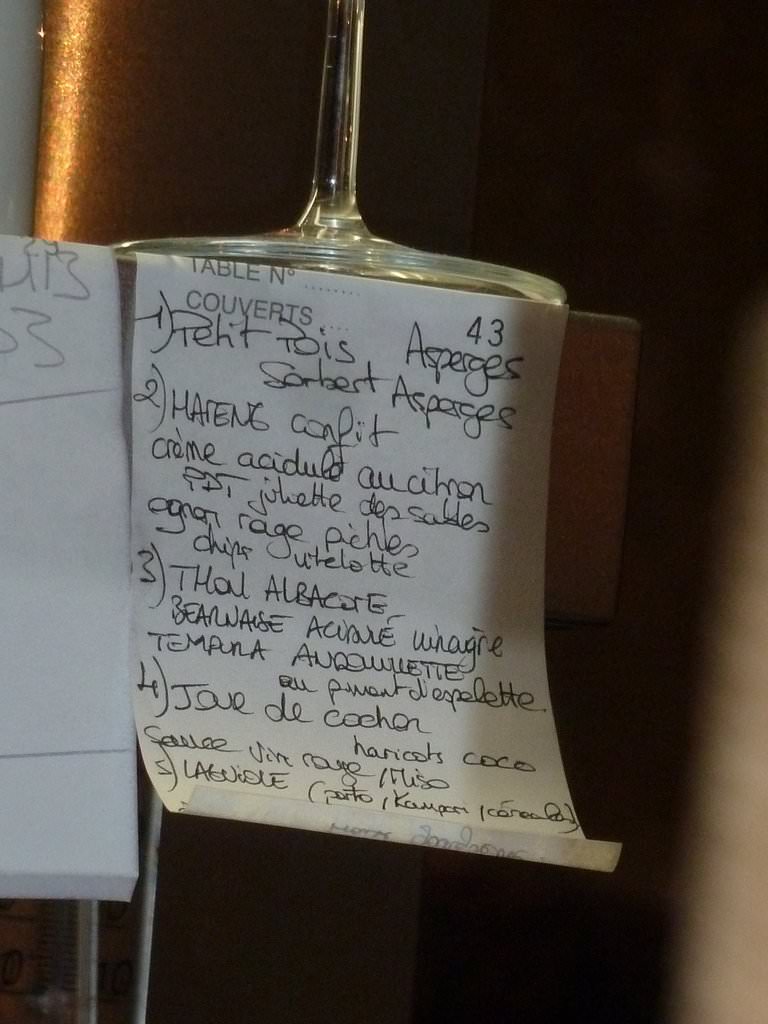 TABLE N° ........
COUVERTS ....
43
1) Petit Pois Asperges
Sorbert Asperges
2) HARENG confit
crème acidulé au citron
PDT juliette des sables
ognon rouge pickles
chips vitelotte
3) THON ALBACORE
BEARNAISE ACIDULÉ vinaigre
TEMPURA ANDOUILLETTE
au piment d'espelette.
4) Joue de cochon
haricots coco
Sauce vin rouge / Miso
5) LAGUIOLE (porto / Kampari / céréales)
33